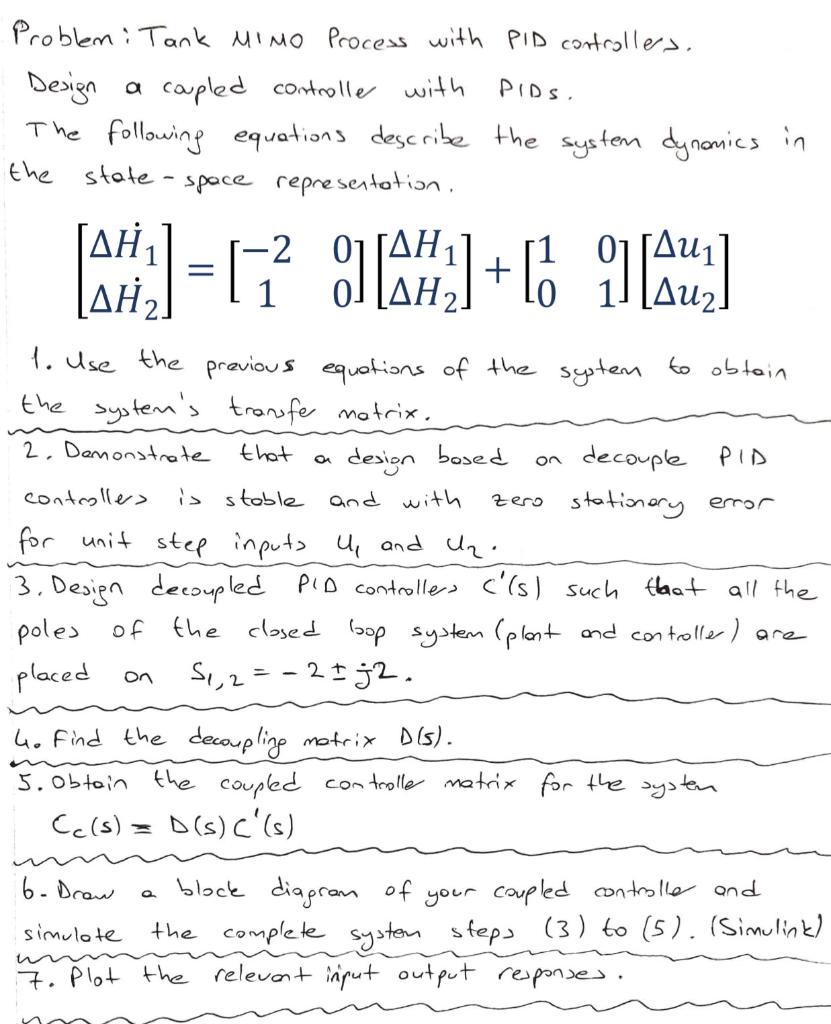 Problem: Tank MIMO Process with PID controllers.
Design a coupled controller with PIDs.
The following equations describe the system dynamics in
the state-space representation.
[ΔḢ₁; ΔḢ₂] = [-2 0; 1 0] [ΔH₁; ΔH₂] + [1 0; 0 1] [Δu₁; Δu₂]
1. Use the previous equations of the system to obtain
the system's transfer matrix.
2. Demonstrate that a design based on decouple PID
controllers is stable and with zero stationary error
for unit step inputs U₁ and U₂.
3. Design decoupled PID controllers C'(s) such that all the
poles of the closed loop system (plant and controller) are
placed on S₁,₂ = -2 ± j2.
4. Find the decoupling matrix D(s).
5. Obtain the coupled controller matrix for the system
Cc(s) = D(s) C'(s)
6. Draw a block diagram of your coupled controller and
simulate the complete system steps (3) to (5). (Simulink)
7. Plot the relevant input output responses.